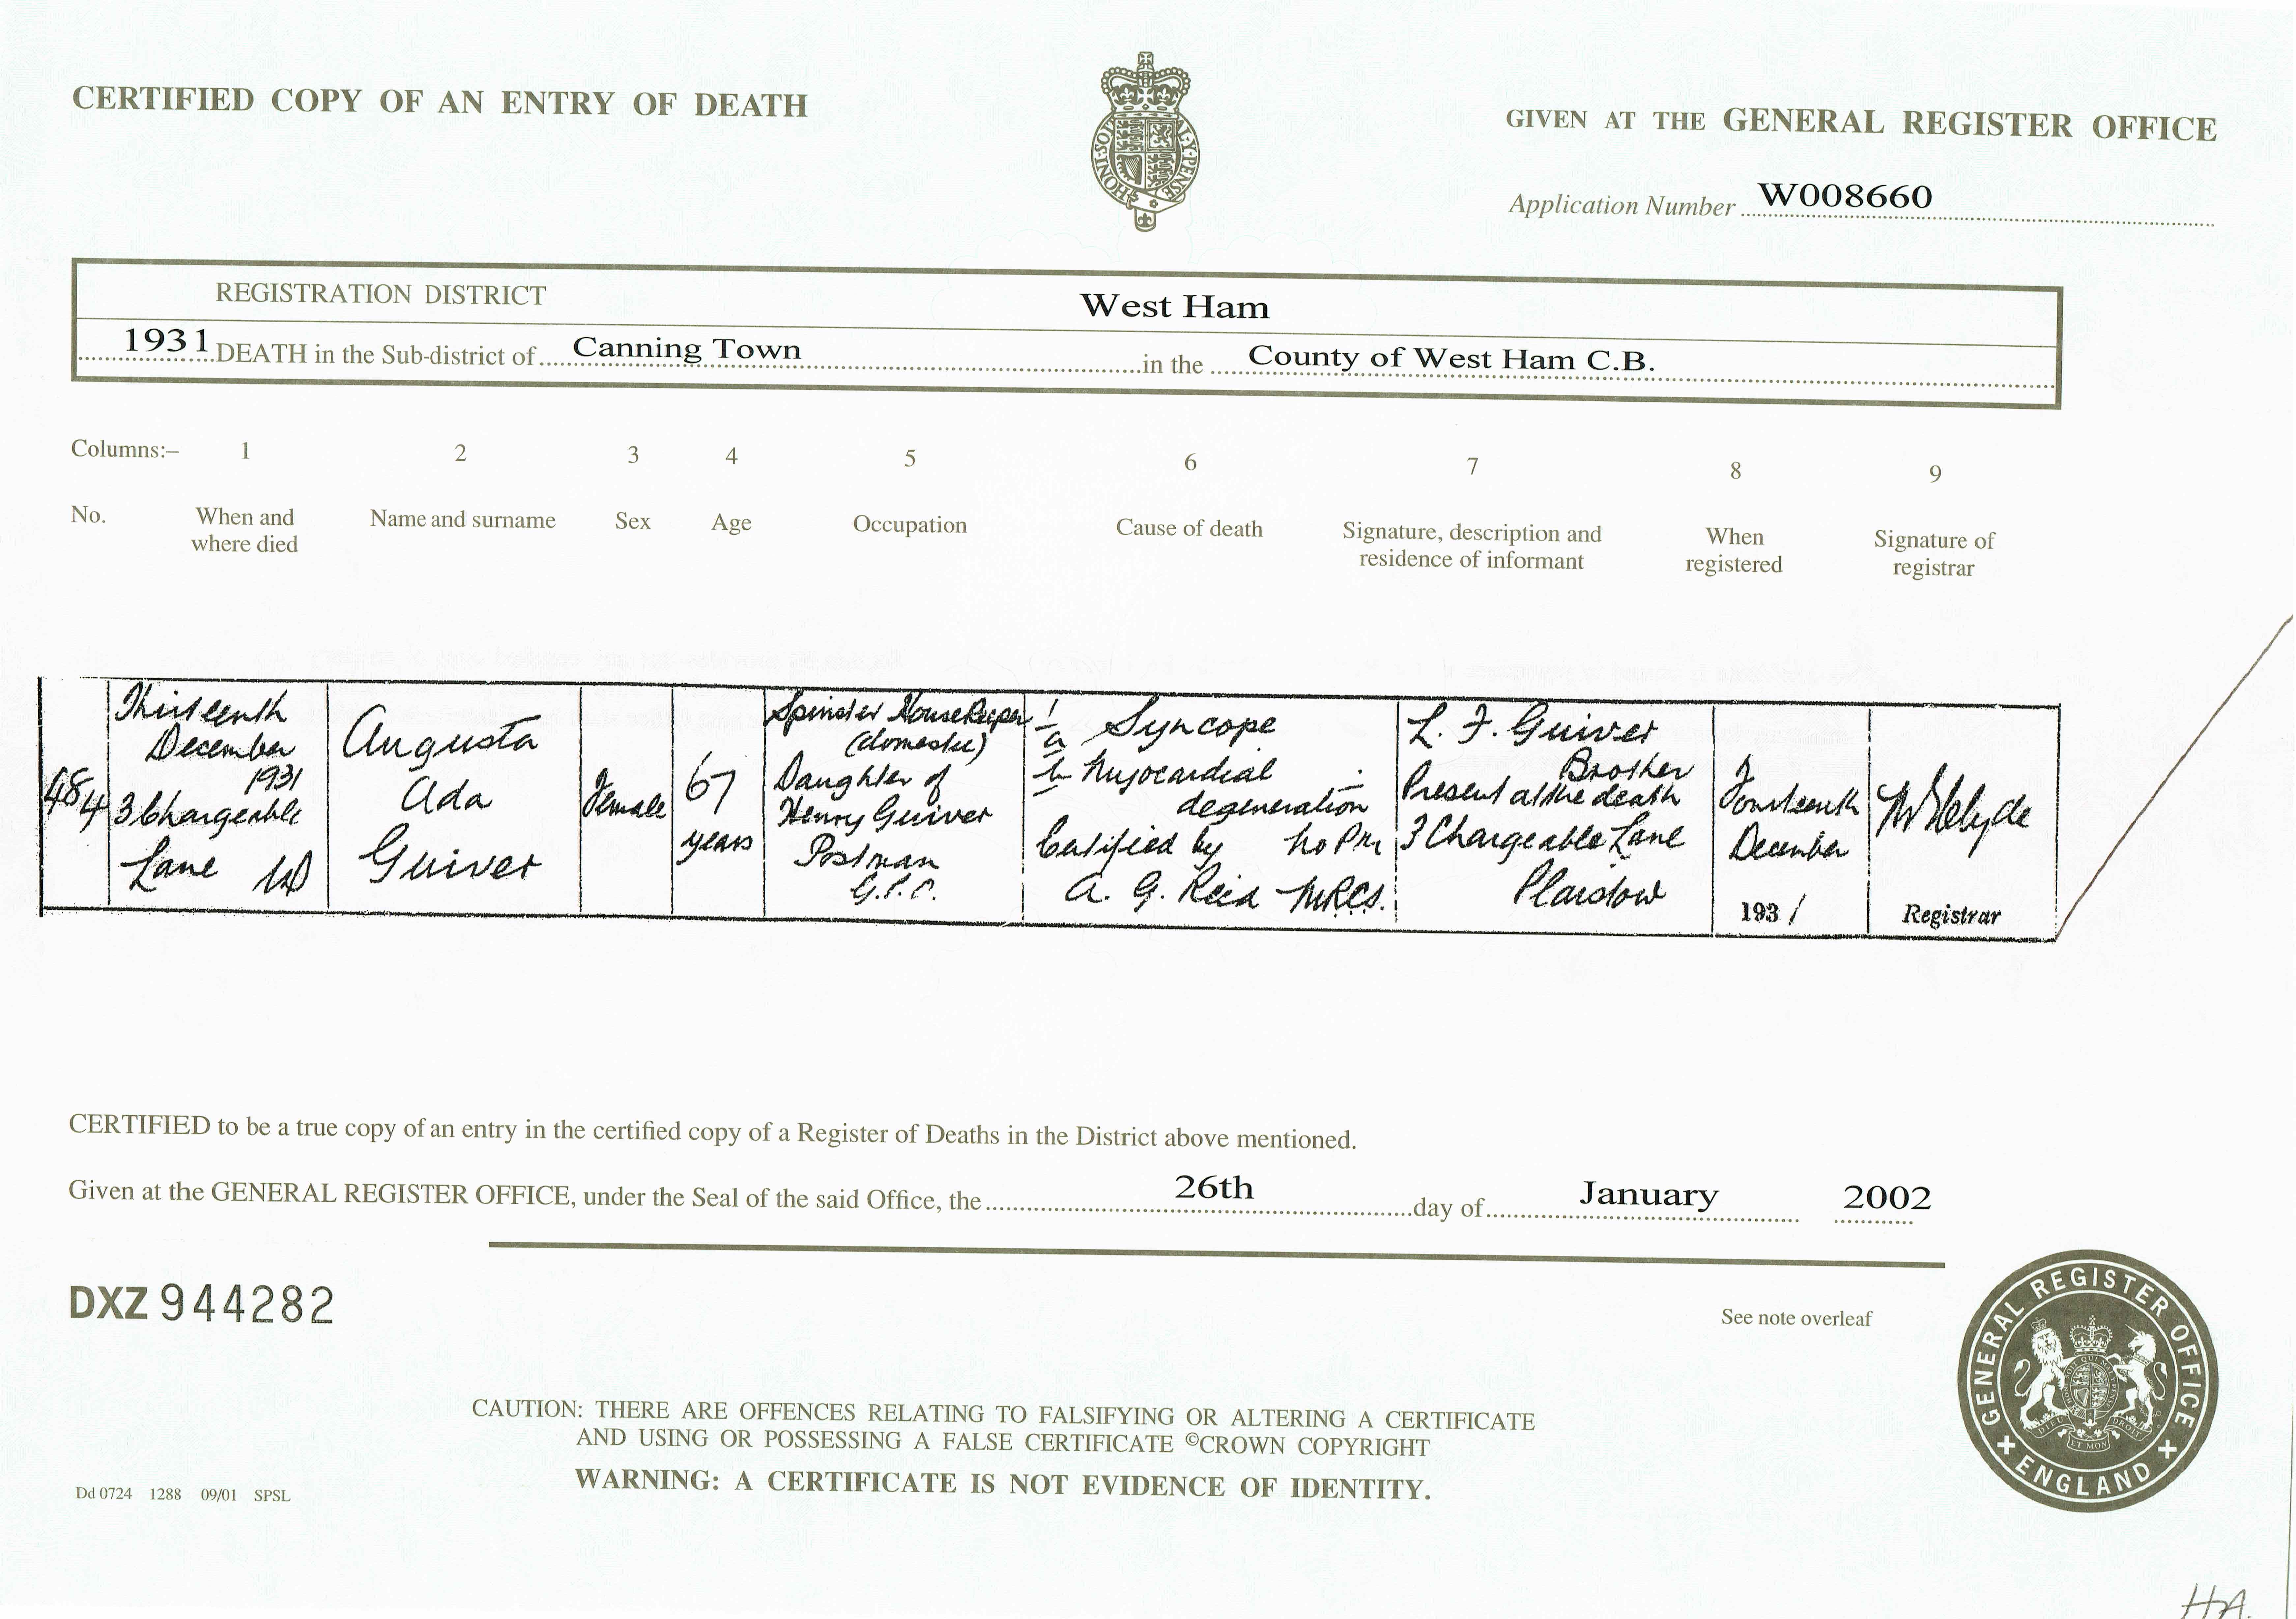 CERTIFIED COPY OF AN ENTRY OF DEATH
GIVEN AT THE GENERAL REGISTER OFFICE
Application Number W008660
REGISTRATION DISTRICT West Ham
1931 DEATH in the Sub-district of Canning Town in the County of West Ham C.B.
Columns:– 1 2 3 4 5 6 7 8 9
No.
When and
where died
Name and surname
Sex
Age
Occupation
Cause of death
Signature, description and
residence of informant
When
registered
Signature of
registrar
484
Thirteenth
December
1931
3 Chargeable
Lane
Augusta
Ada
Guiver
Female
67
years
Spinster Housekeeper
(domestic)
Daughter of
Henry Guiver
Postman
G.P.O.
1
a Syncope
b Myocardial
degeneration
Certified by No P.M.
A. G. Reid MRCS.
L. F. Guiver
Brother
Present at the death
3 Chargeable Lane
Plaistow
Fourteenth
December
1931
Registrar
CERTIFIED to be a true copy of an entry in the certified copy of a Register of Deaths in the District above mentioned.
Given at the GENERAL REGISTER OFFICE, under the Seal of the said Office, the 26th day of January 2002
DXZ 944282
See note overleaf
GENERAL REGISTER OFFICE
ENGLAND
CAUTION: THERE ARE OFFENCES RELATING TO FALSIFYING OR ALTERING A CERTIFICATE
AND USING OR POSSESSING A FALSE CERTIFICATE ©CROWN COPYRIGHT
WARNING: A CERTIFICATE IS NOT EVIDENCE OF IDENTITY.
Dd 0724 1288 09/01 SPSL